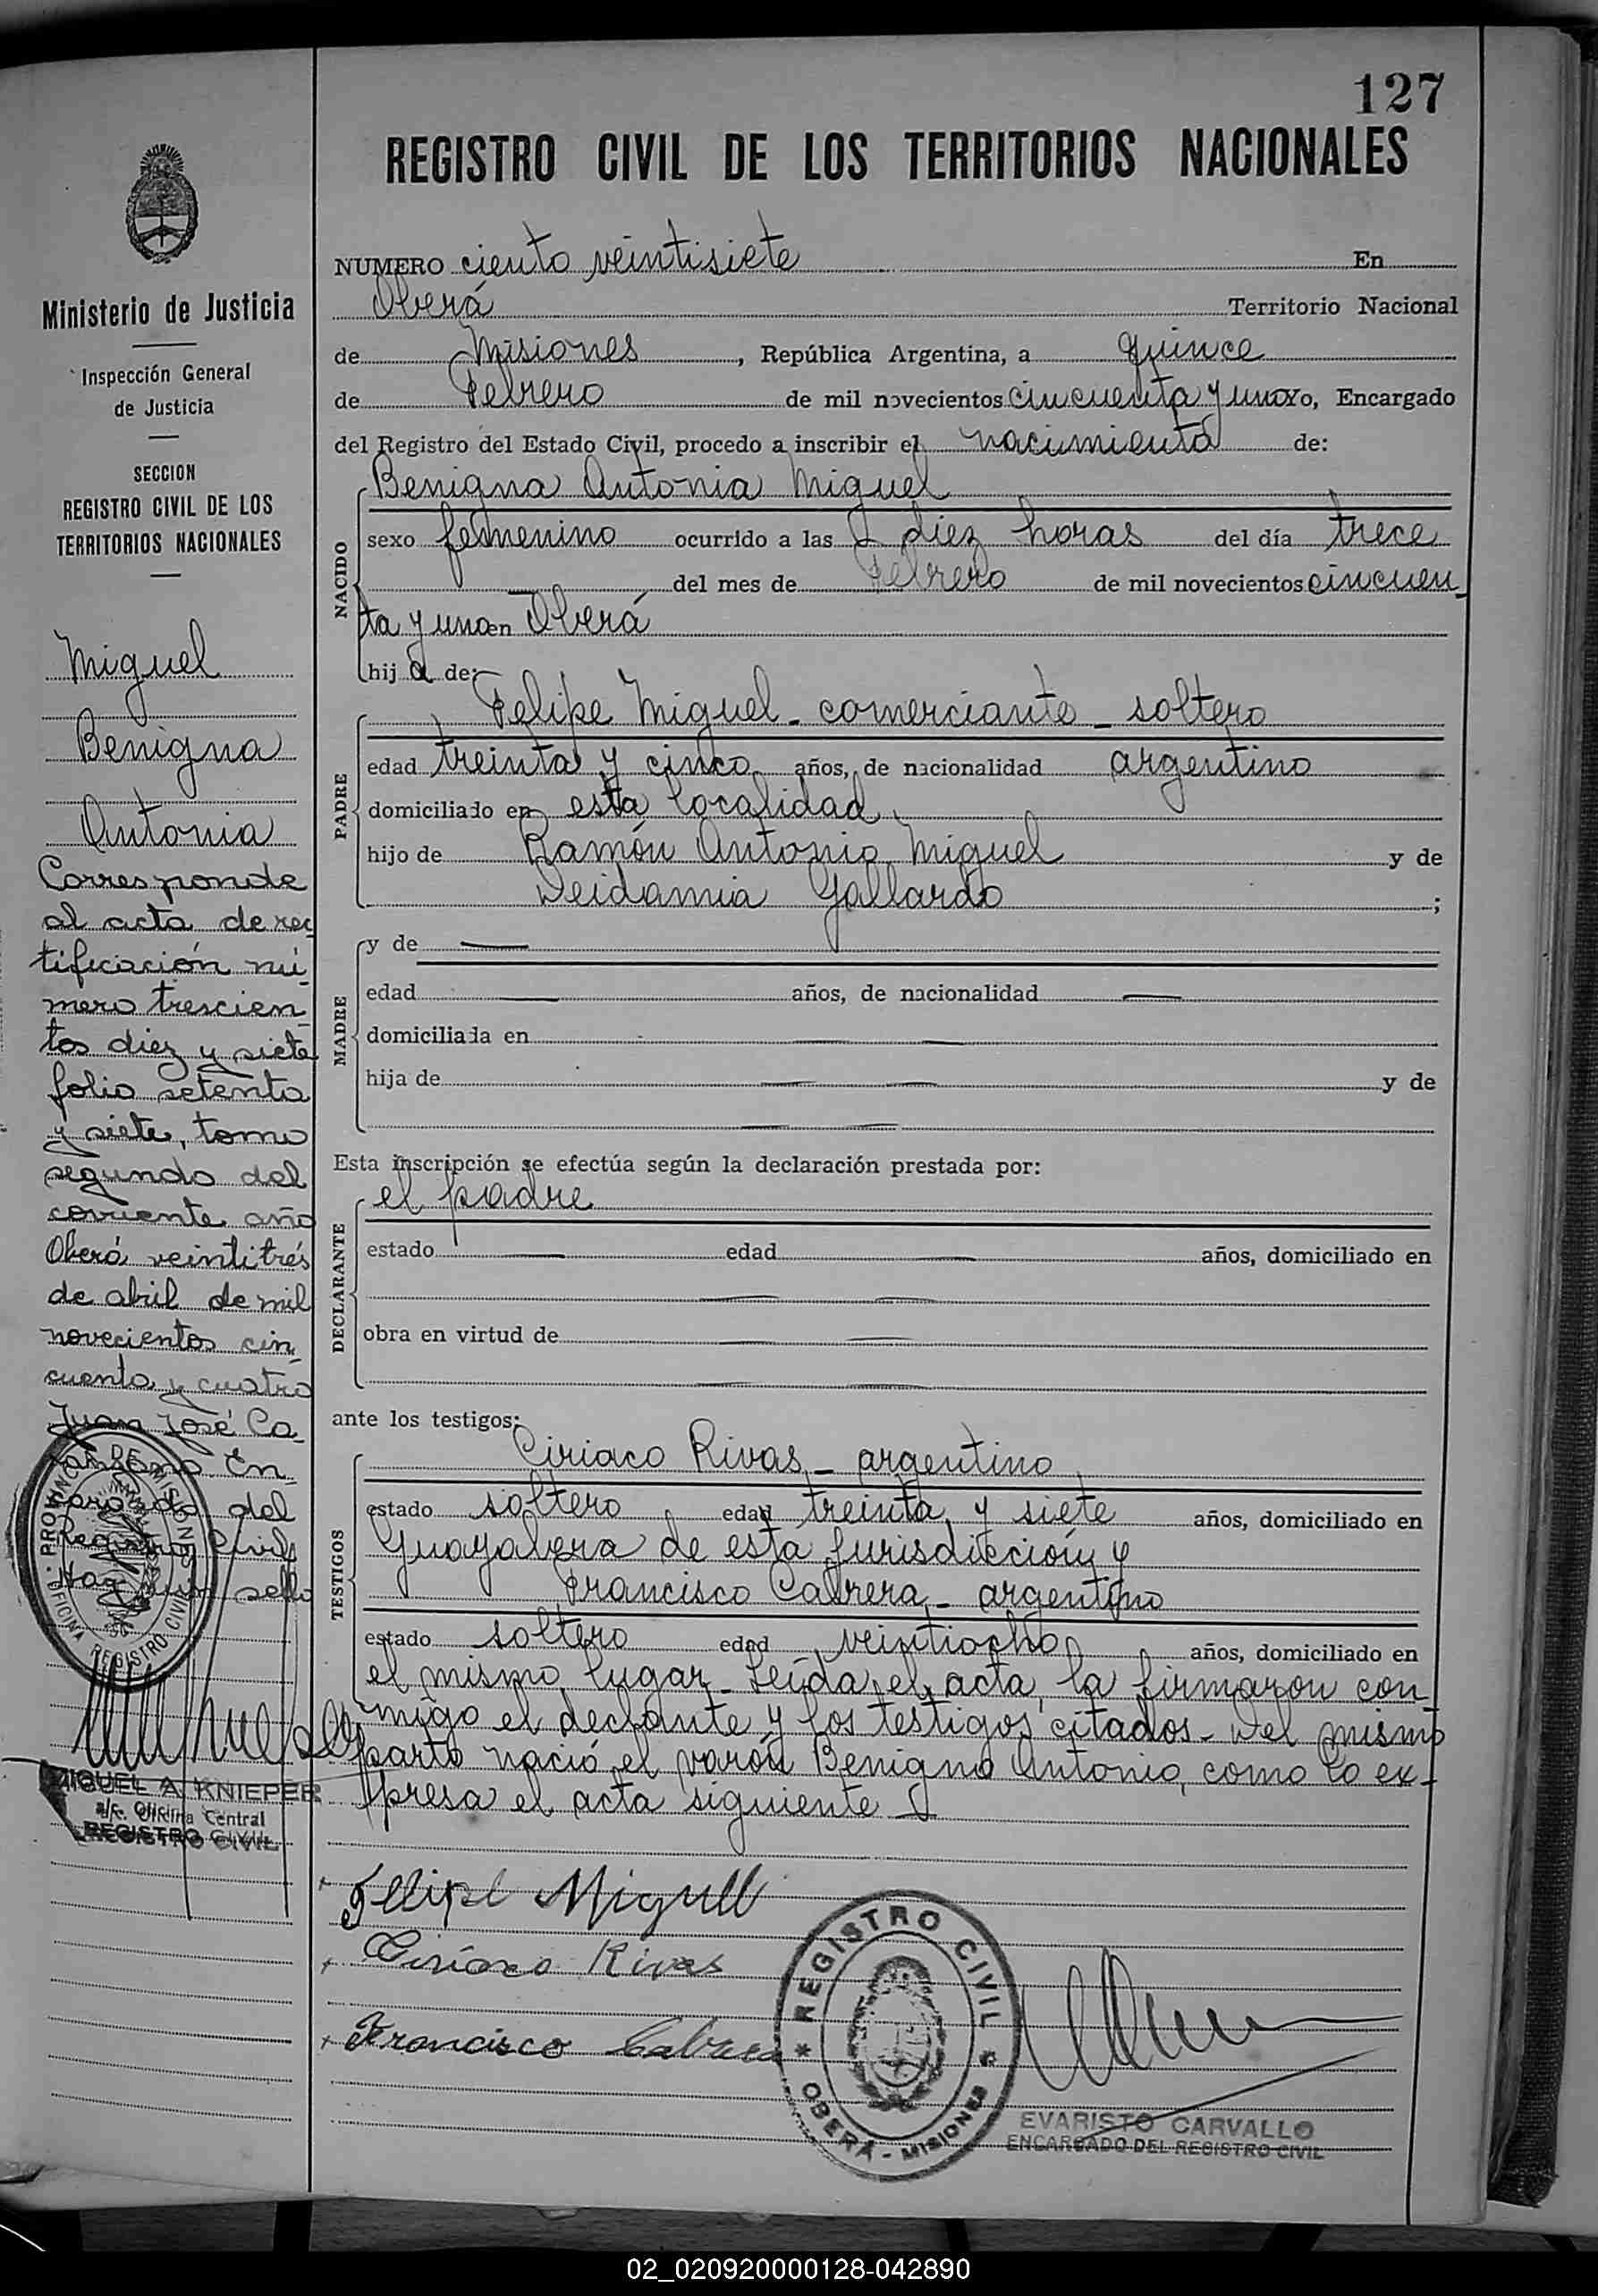 127
REGISTRO CIVIL DE LOS TERRITORIOS NACIONALES
Ministerio de Justicia
Inspección General
de Justicia
SECCION
REGISTRO CIVIL DE LOS
TERRITORIOS NACIONALES
Miguel
Benigna
Antonia
Corresponde
al acta de rec
tificación nú-
mero trescien-
tos diez y siete
folio setenta
y siete, tomo
segundo del
corriente año
Oberá veintitrés
de abril de mil
novecientos cin-
cuenta y cuatro
Juan José Ca-
En-
del
Registro Civil
Hay un sello
PROVINCIA DE MISIONES
OFICINA REGISTRO CIVIL
MIGUEL A. KNIEPER
a/c. Oficina Central
REGISTRO CIVIL
NUMERO ciento veintisiete En
Oberá Territorio Nacional
de Misiones, República Argentina, a quince
de Febrero de mil novecientos cincuenta y uno yo, Encargado
del Registro del Estado Civil, procedo a inscribir el nacimiento de:
NACIDO
Benigna Antonia Miguel
sexo femenino ocurrido a las diez horas del día trece
del mes de Febrero de mil novecientos cincuen-
ta y uno en Oberá
hij a de:
PADRE
Felipe Miguel - comerciante - soltero
edad treinta y cinco años, de nacionalidad argentino
domiciliado en esta localidad
hijo de Ramón Antonio Miguel y de
Deidamia Gallardo ;
MADRE
y de —
edad — años, de nacionalidad —
domiciliada en — —
hija de — — y de
— —
Esta inscripción se efectúa según la declaración prestada por:
DECLARANTE
el padre
estado — edad — años, domiciliado en
— —
obra en virtud de — —
— —
ante los testigos:
TESTIGOS
Ciriaco Rivas - argentino
estado soltero edad treinta y siete años, domiciliado en
Guayabera de esta jurisdicción y
Francisco Cabrera - argentino
estado soltero edad veintiocho años, domiciliado en
el mismo lugar - Leída el acta, la firmaron con-
migo el declante y los testigos citados - Del mismo
parto nació el varón Benigno Antonio, como lo ex-
presa el acta siguiente
Felipe Miguel
Ciriaco Rivas
Francisco Cabrera
REGISTRO CIVIL
OBERÁ - MISIONES
EVARISTO CARVALLO
ENCARGADO DEL REGISTRO CIVIL
02_020920000128-042890